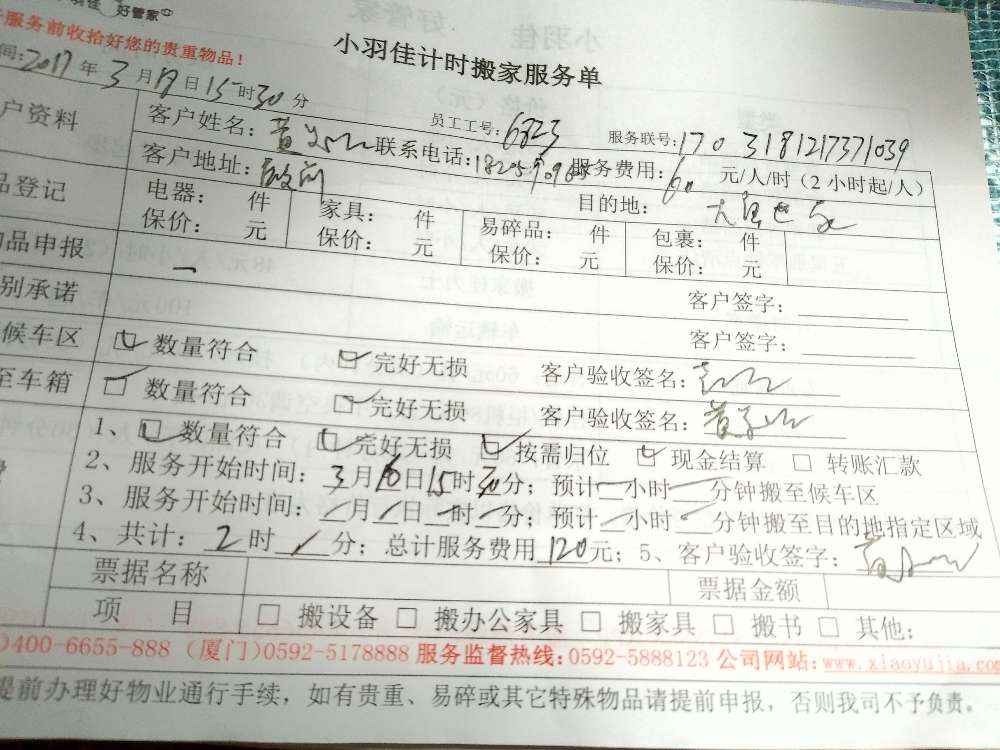 好管家
服务前收拾好您的贵重物品！
小羽佳计时搬家服务单
间：2017年3月17日15时30分
员工工号：6823
服务联号：1703181217371039
户资料
客户姓名：黄
联系电话：
服务费用：60元/人/时（2小时起/人）
客户地址：
目的地：
品登记
电器： 件
家具： 件
易碎品： 件
包裹： 件
保价： 元
保价： 元
保价： 元
保价： 元
物品申报
一
客户签字：
别承诺
客户签字：
候车区
☑ 数量符合 ☑ 完好无损 客户验收签名：
至车箱
☑ 数量符合 ☑ 完好无损 客户验收签名：
1、☑ 数量符合 ☑ 完好无损 ☑ 按需归位 ☑ 现金结算 □ 转账汇款
2、服务开始时间：3月16日15时30分；预计 小时 分钟搬至候车区
3、服务开始时间： 月 日 时 分；预计 小时 分钟搬至目的地指定区域
4、共计：2时 分；总计服务费用120元；5、客户验收签字：
票据名称
票据金额
项 目
□ 搬设备 □ 搬办公家具 □ 搬家具 □ 搬书 □ 其他：
)400-6655-888 (厦门)0592-5178888 服务监督热线：0592-5888123 公司网站：www.xiaoyujia.com
提前办理好物业通行手续，如有贵重、易碎或其它特殊物品请提前申报，否则我司不予负责。